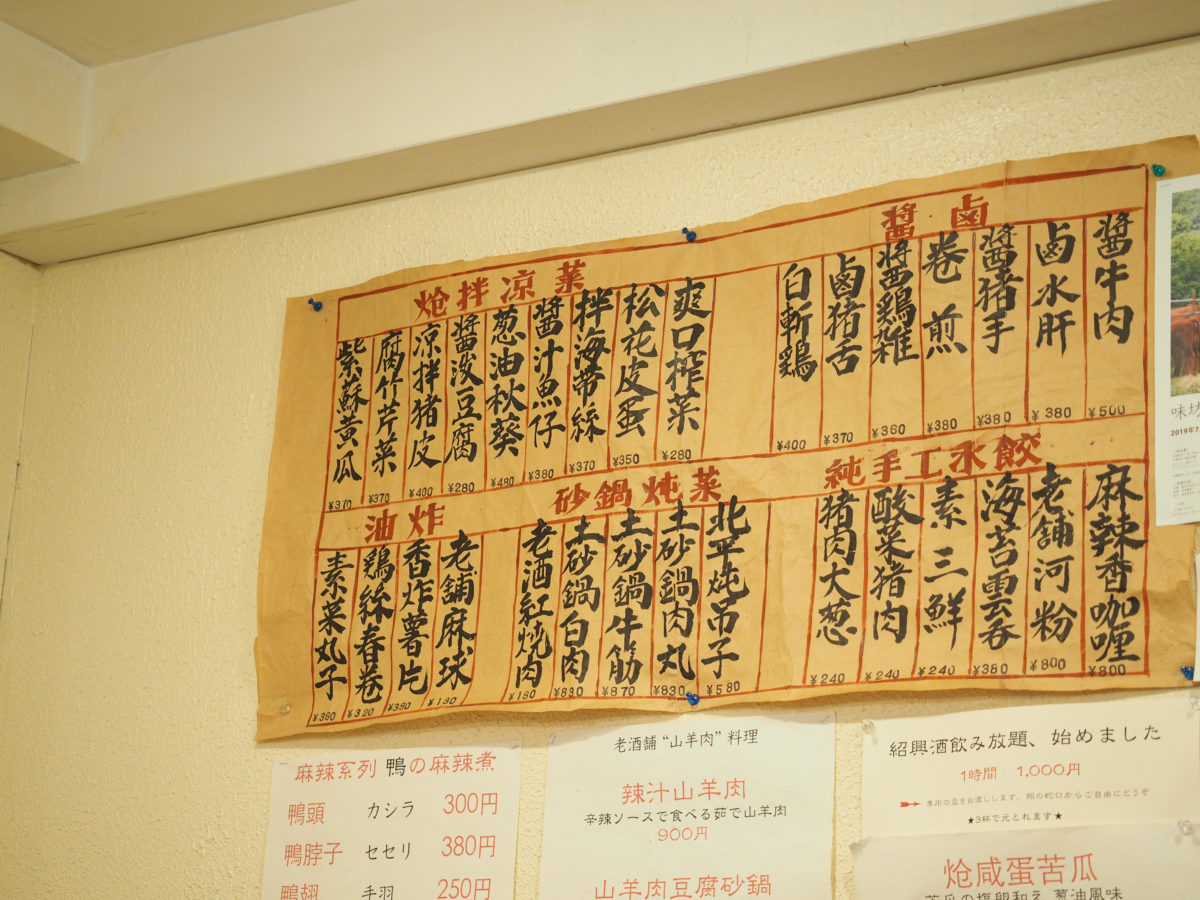 醤 卤
醤牛肉
¥500
卤水肝
¥380
醤猪手
¥380
卷煎
¥380
醤鶏雑
¥360
卤猪舌
¥370
白斬鶏
¥400
炝拌凉菜
爽口榨菜
¥280
松花皮蛋
¥350
拌海帯絲
¥370
醤汁魚仔
¥380
葱油秋葵
¥480
醤浸豆腐
¥280
凉拌猪皮
¥400
腐竹芹菜
¥370
紫蘇黄瓜
¥370
純手工水餃
麻辣香咖喱
¥800
老舗河粉
¥800
海苔雲吞
¥380
素三鮮
¥240
酸菜猪肉
¥240
猪肉大葱
¥240
砂鍋炖菜
北平炖吊子
¥580
土砂鍋肉丸
¥830
土砂鍋牛筋
¥870
土砂鍋白肉
¥830
老酒紅焼肉
¥180
油炸
老舗麻球
¥180
香炸薯片
¥380
鶏絲春卷
¥320
素菜丸子
¥360
麻辣系列 鴨の麻辣煮
鴨頭 カシラ 300円
鴨脖子 セセリ 380円
鴨翅 手羽 250円
老酒舗“山羊肉”料理
辣汁山羊肉
辛辣ソースで食べる茹で山羊肉
900円
山羊肉豆腐砂鍋
紹興酒飲み放題、始めました
1時間 1,000円
専用の盃をお渡しします。甕の蛇口からご自由にどうぞ
★3杯で元とれます★
炝咸蛋苦瓜
苦瓜の塩卵和え 葱油風味
味坊
2019年7